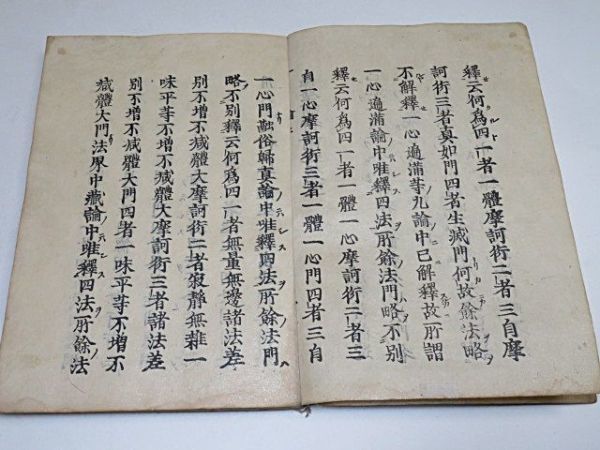 釋云何為四一者一體摩訶衍二者三自摩
訶衍三者真如門四者生滅門何故餘法略
不解釋一心遍滿第九論中已解釋故所謂
一心遍滿論中唯釋四法所餘法門略不別
釋云何為四一者一體一心摩訶衍二者三
自一心摩訶衍三者一體一心門四者三自
一心門融俗歸真論中唯釋四法所餘法門
略不別釋云何為四一者無量無邊諸法差
別不增不減體大摩訶衍二者寂靜無雜一
味平等不增不減體大摩訶衍三者諸法差
別不增不減體大門四者一味平等不增不
減體大門法界中藏論中唯釋四法所餘法